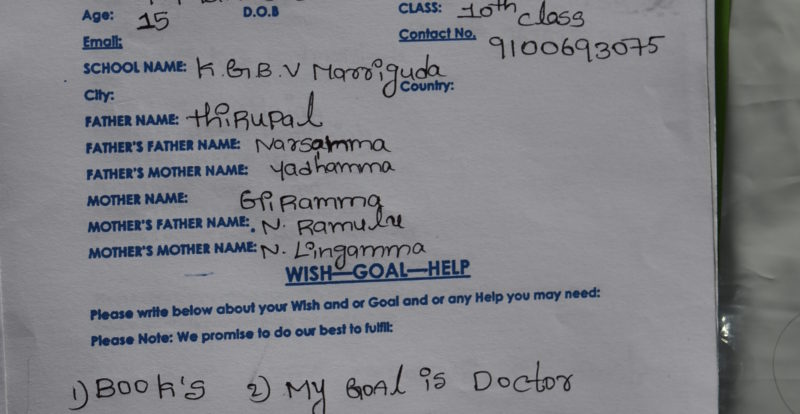 Age: 15 D.O.B CLASS: 10th class
Email: Contact No. 9100693075
SCHOOL NAME: K.G.B.V Marriguda
City: Country:
FATHER NAME: thiRupal
FATHER'S FATHER NAME: Narsamma
FATHER'S MOTHER NAME: Yadhamma
MOTHER NAME: Giramma
MOTHER'S FATHER NAME: N. Ramulu
MOTHER'S MOTHER NAME: N. Lingamma
WISH—GOAL—HELP
Please write below about your Wish and or Goal and or any Help you may need:
Please Note: We promise to do our best to fulfil:
1) Book's 2) My GOAL is Doctor